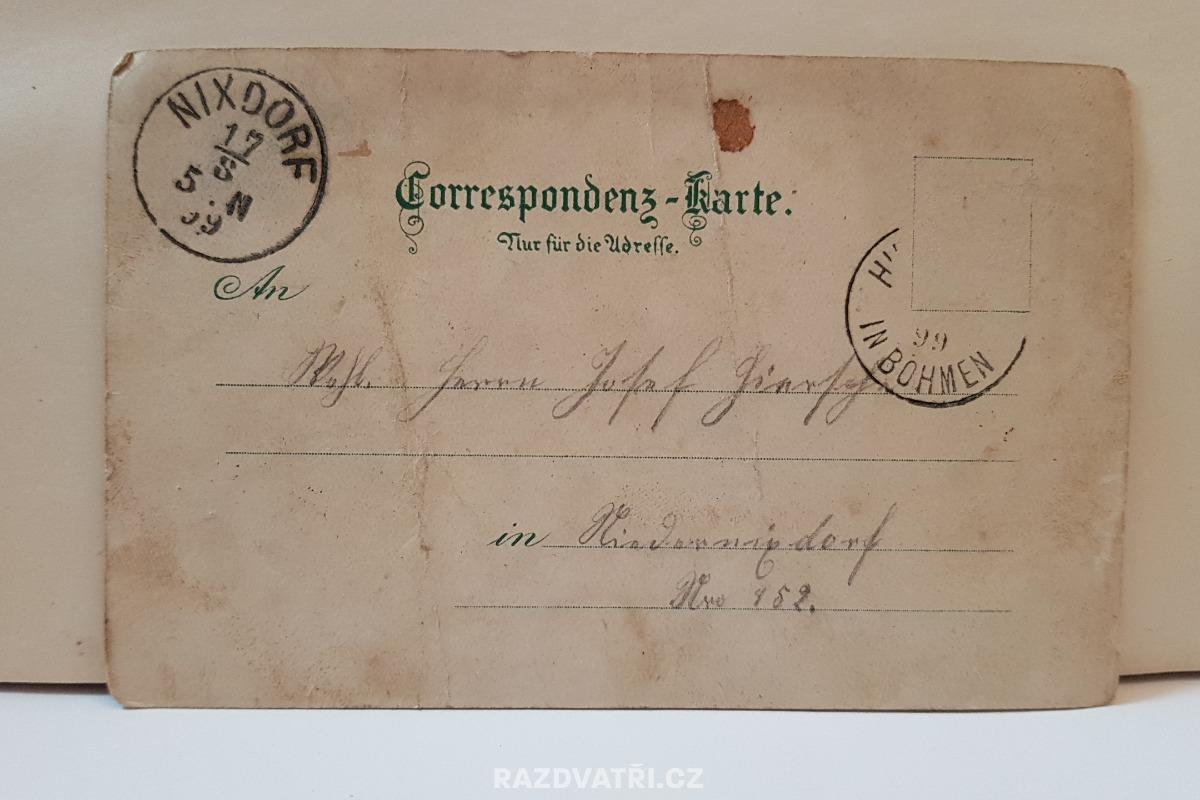 NIXDORF
17
8
5 · N
99
Correspondenz-Karte.
Nur für die Adresse.
An
IN BÖHMEN
99
Herrn Josef
in Niedernixdorf
Nro 152.
RAZDVATŘI.CZ